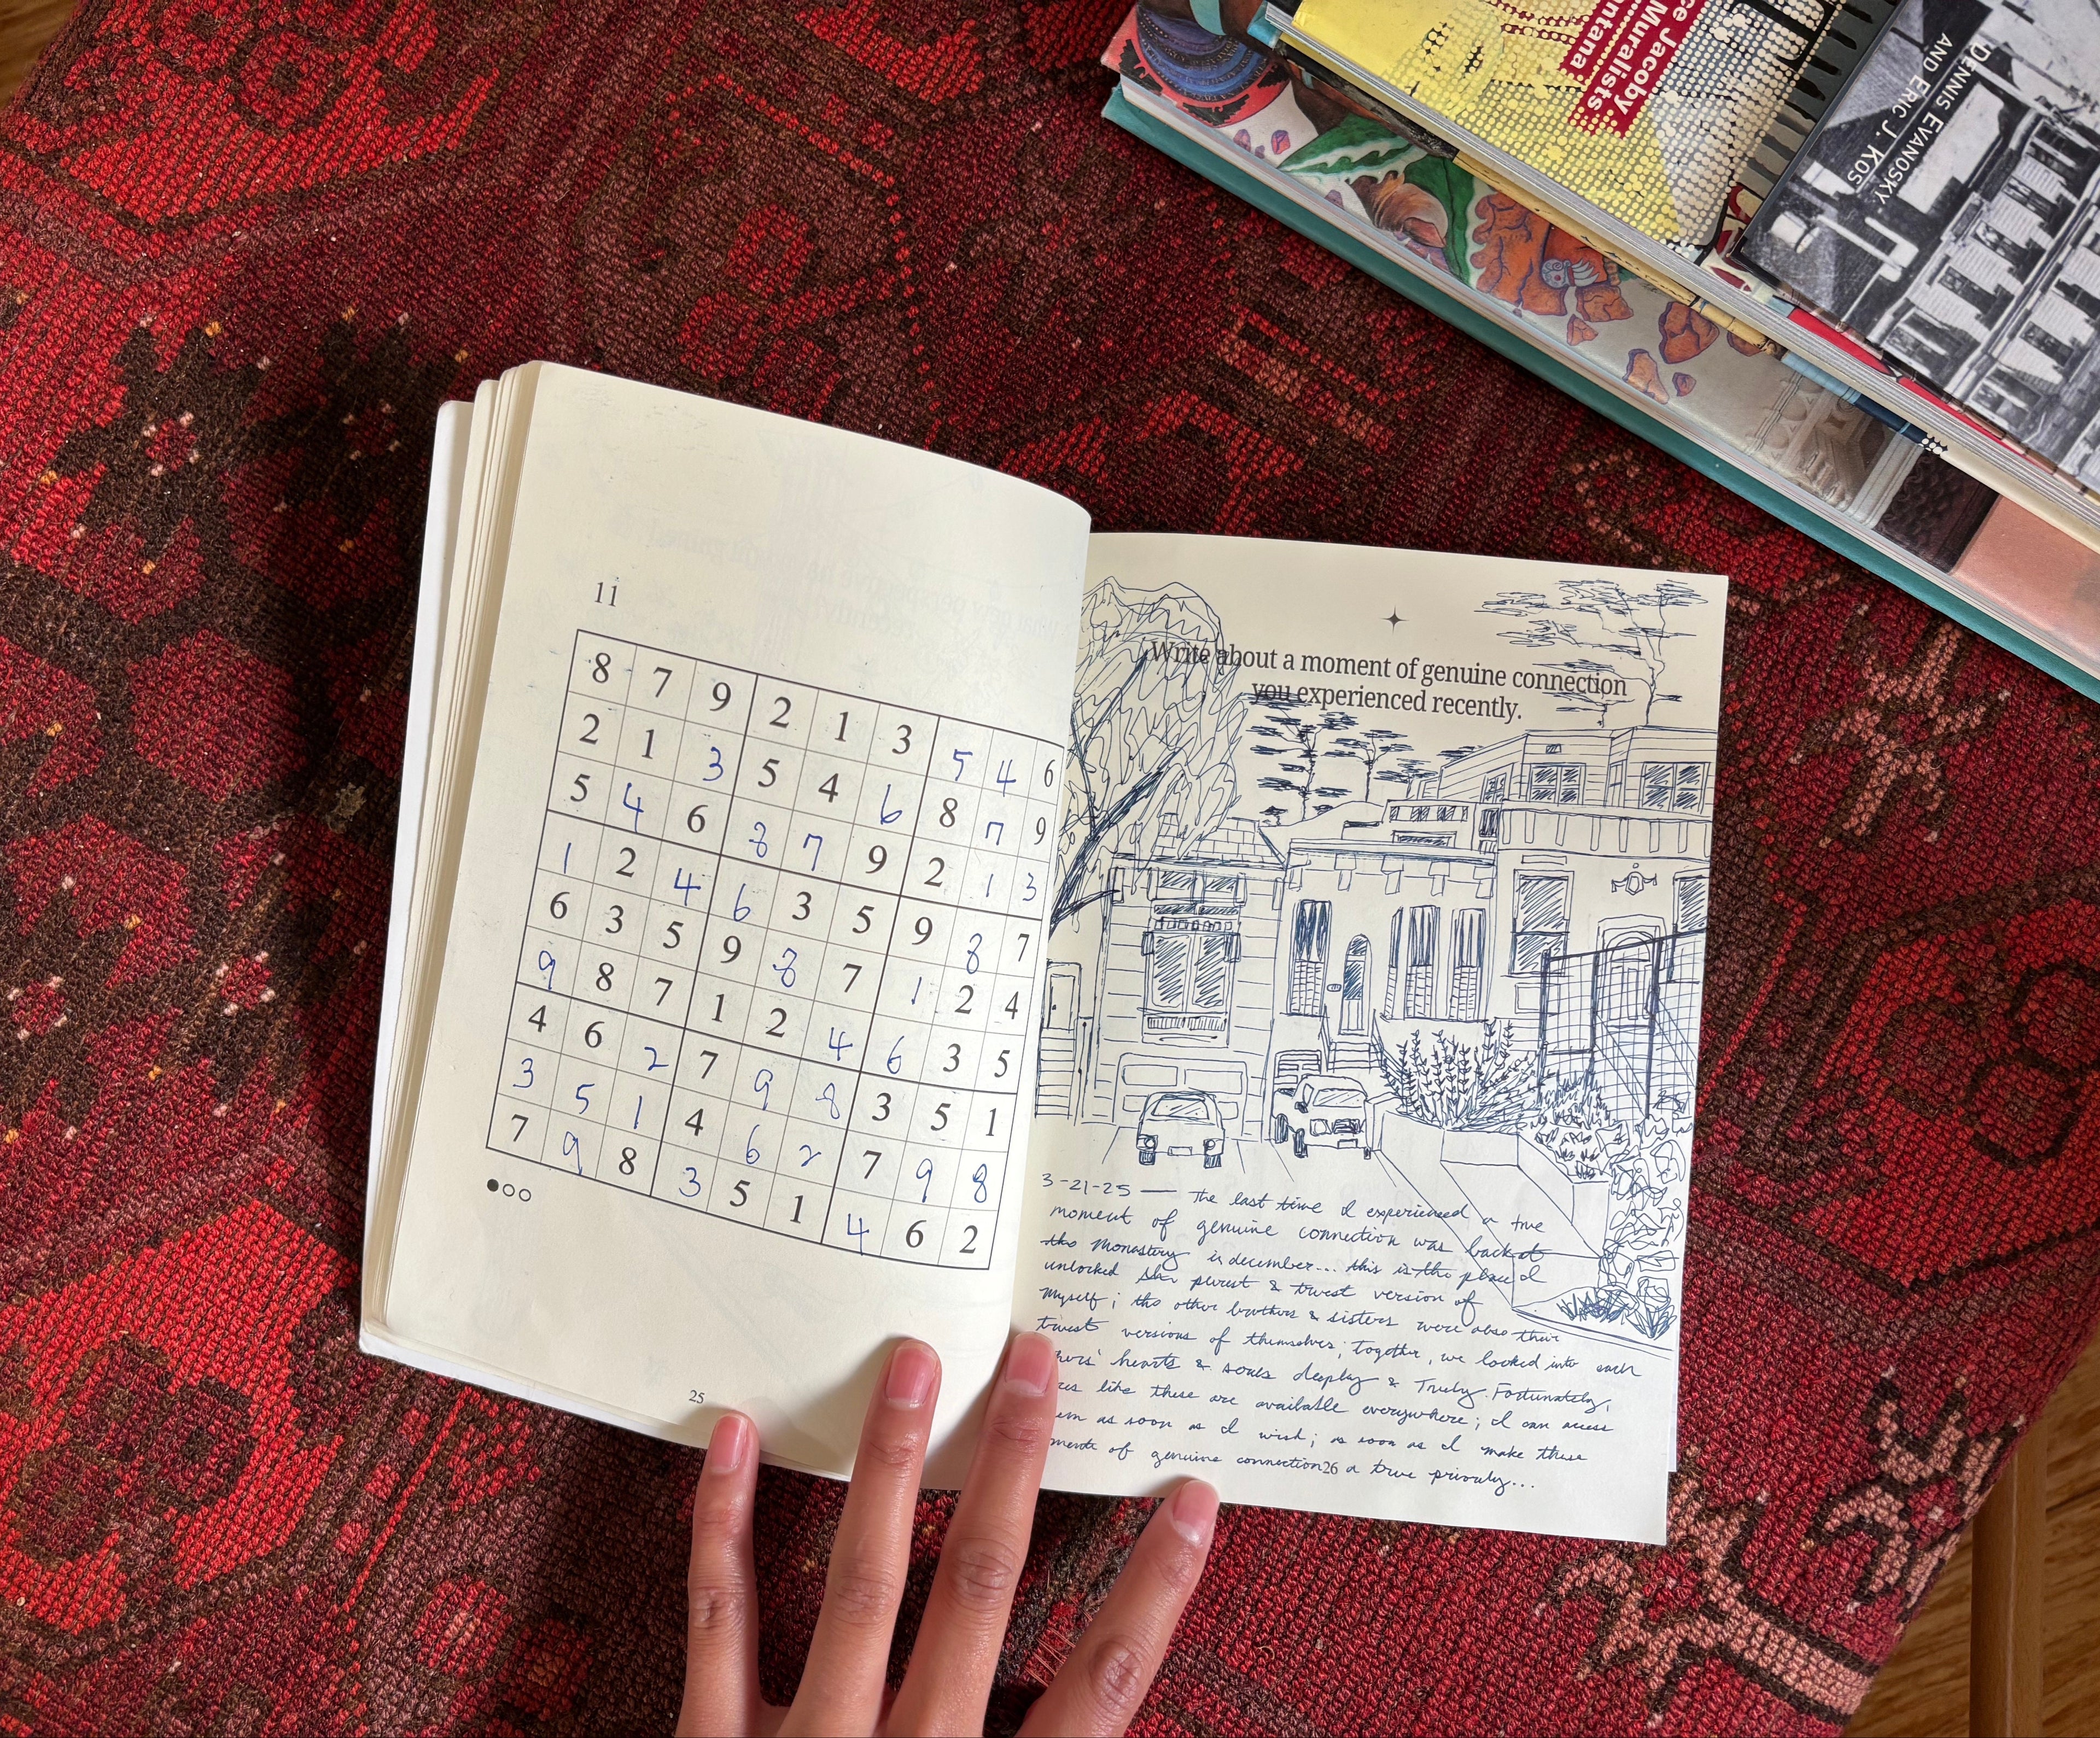 ce Jacoby
Muralists
ntana
DENNIS EVANOSKY
AND ERIC J. KOS
11
8 7 9 2 1 3 5 4 6
2 1 3 5 4 6 8 7 9
5 4 6 8 7 9 2 1 3
1 2 4 6 3 5 9 8 7
6 3 5 9 8 7 1 2 4
9 8 7 1 2 4 6 3 5
4 6 2 7 9 8 3 5 1
3 5 1 4 6 2 7 9 8
7 9 8 3 5 1 4 6 2
25
Write about a moment of genuine connection
you experienced recently.
3-21-25 — The last time I experienced a true
moment of genuine connection was back at
the Monastery in december... this is the place I
unlocked the purest & truest version of
myself; the other brothers & sisters were also their
truest versions of themselves; together, we looked into each
hers' hearts & souls deeply & Truly. Fortunately,
ces like these are available everywhere; I can access
em as soon as I wish; as soon as I make these
ments of genuine connection a true priority...
26